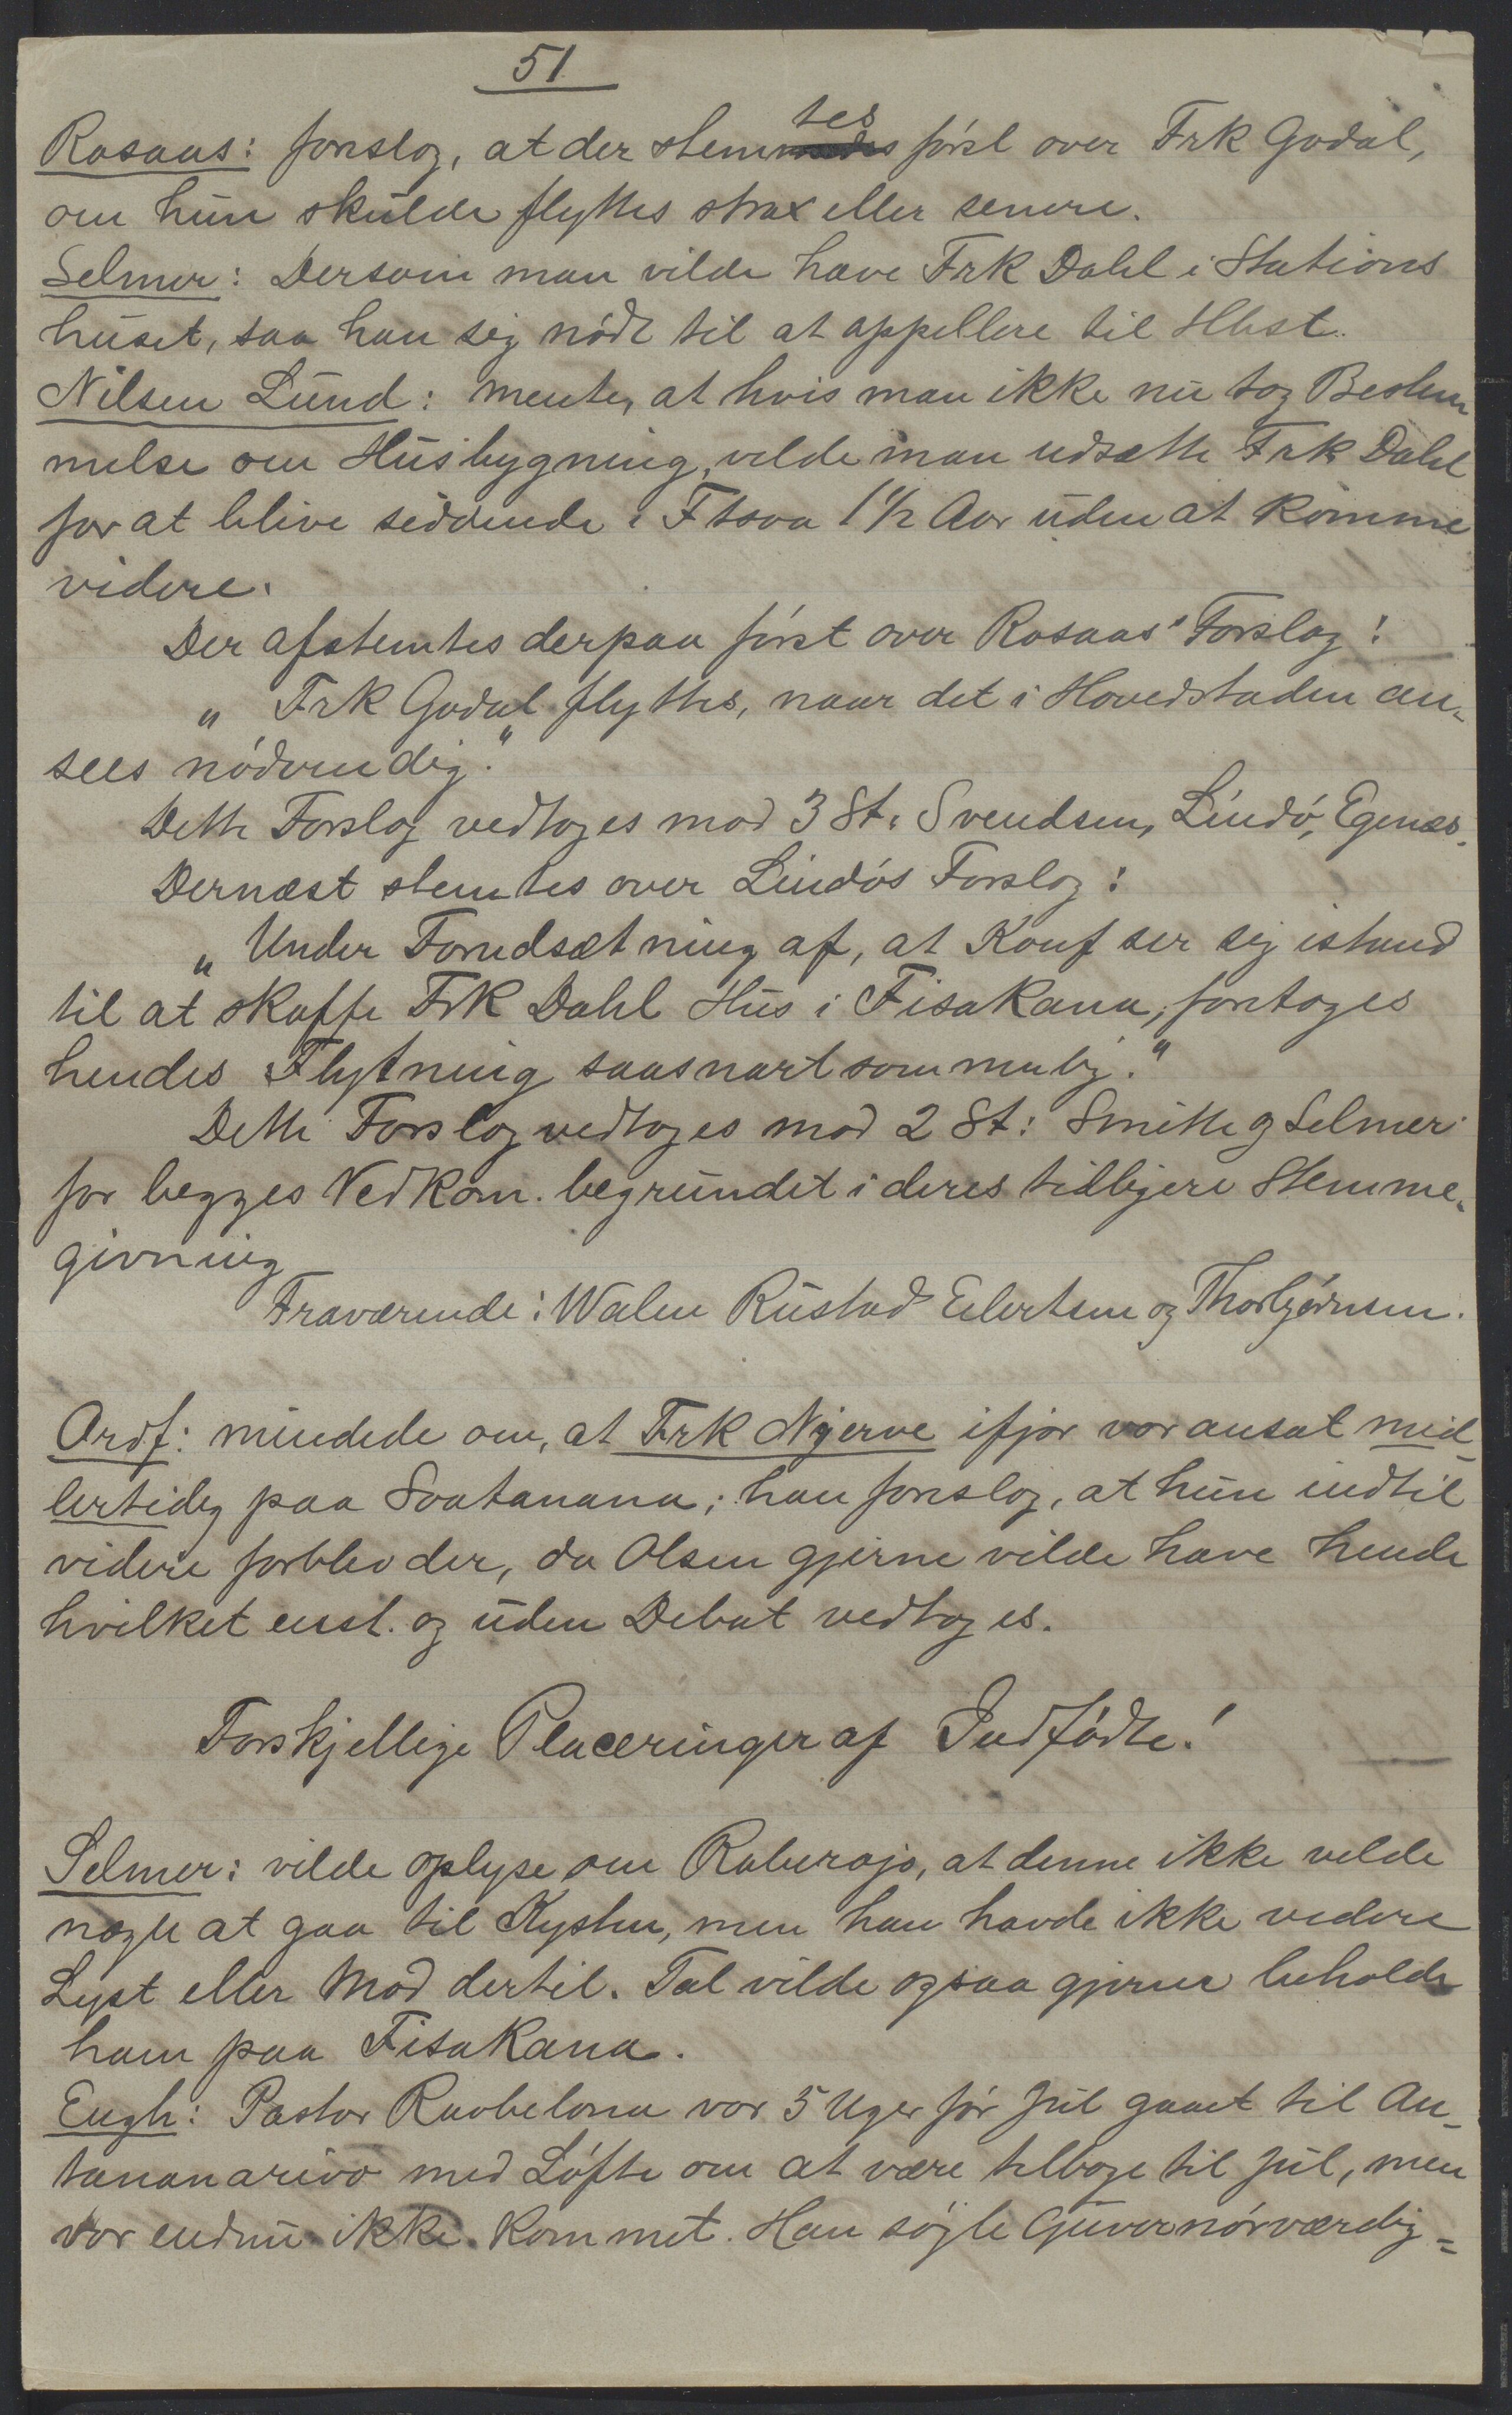 51
Rosaas: foreslog, at der stemtes først over Frk Godal,
om hun skulde flyttes strax eller senere.
Selmer: Dersom man vilde have Frk Dahl i Stations
huset, saa han sig nødt til at appellere til Hbst.
Nilsen Lund: mente, at hvis man ikke nu tog Bestem
melse om Husbygning, vilde man udsætte Frk Dahl
for at blive siddende i Ftsoa 1 1/2 Aar uden at komme
videre.
Der afstemtes derpaa først over Rosaas' Forslag:
„Frk Godal flyttes, naar det i Hovedstaden an-
sees nødvendig."
Dette Forslag vedtoges mod 3 St. Svendsen, Lindø, Egenæs.
Dernæst stemtes over Lindøs Forslag:
„Under Forudsætning af, at Konf ser sig istand
til at skaffe Frk Dahl Hus i Fisakana, foretoges
hendes Flytning saasnart som mulig."
Dette Forslag vedtoges mod 2 St: Smith og Selmer
for begges Vedkom. begrundet i deres tidligere Stemme-
givning
Fraværende: Walen Rustad Eilertsen og Thorbjørnsen.
Ordf: mindede om, at Frk Nygerve ifjor var ansat mid
lertidig paa Soatanana; han foreslog, at hun indtil
videre forblev der, da Olsen gjerne vilde have hende
hvilket enst. og uden Debat vedtoges.
Forskjellige Placeringer af Indfødte!
Selmer: vilde oplyse om Raberojo, at denne ikke vilde
nægte at gaa til Kysten, men han havde ikke videre
Lyst eller Mod dertil. Tal vilde ogsaa gjerne beholde
ham paa Fisakana.
Engh: Pastor Raobelona var 5 Uger før Jul gaaet til An-
tananarivo med Løfte om at være tilbage til Jul, men
var endnu ikke kommet. Han søgte Guvernørværdig=